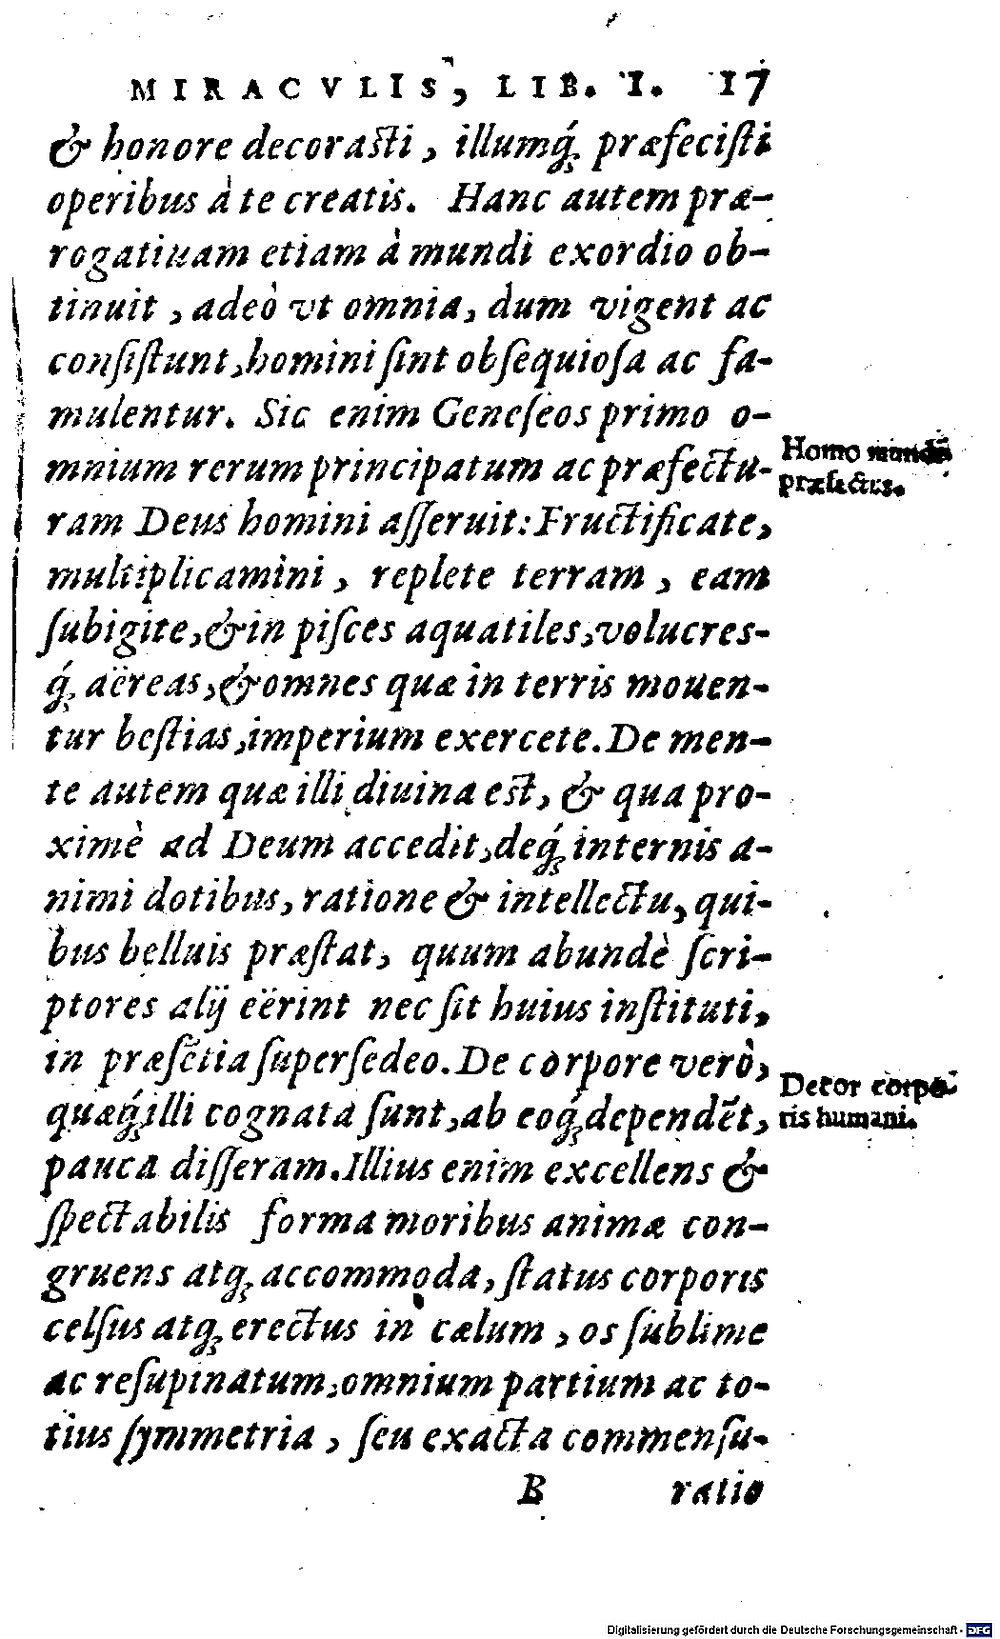 MIRACVLIS, LIB. I. 17
& honore decorasti, illumq́ꝫ præfecisti
operibus à te creatis. Hanc autem præ-
rogatiuam etiam à mundi exordio ob-
tinuit, adeò vt omnia, dum vigent ac
consiſtunt, homini ſint obſequioſa ac fa-
mulentur. Sic enim Geneſeos primo o-
mnium rerum principatum ac præfectu-
Homo mundi
præfectus.
ram Deus homini aſſeruit: Fructificate,
multiplicamini, replete terram, eam
ſubigite, & in piſces aquatiles, volucres-
q́ꝫ aëreas, & omnes quæ in terris mouen-
tur beſtias, imperium exercete. De men-
te autem quæ illi diuina est, & qua pro-
ximè ad Deum accedit, deq́ꝫ internis a-
nimi dotibus, ratione & intellectu, qui-
bus belluis præſtat, quum abundè ſcri-
ptores alij eërint nec ſit huius inſtituti,
in præſẽtia ſuperſedeo. De corpore verò,
Decor corpo-
ris humani.
quæq́ꝫ illi cognata ſunt, ab eoq́ꝫ dependẽt,
pauca diſſeram. Illius enim excellens &
ſpectabilis forma moribus animæ con-
gruens atqꝫ accommoda, ſtatus corporis
celſus atqꝫ erectus in cælum, os ſublime
ac reſupinatum, omnium partium ac to-
tius ſymmetria, ſeu exacta commenſu-
B ratio
Digitalisierung gefördert durch die Deutsche Forschungsgemeinschaft - DFG